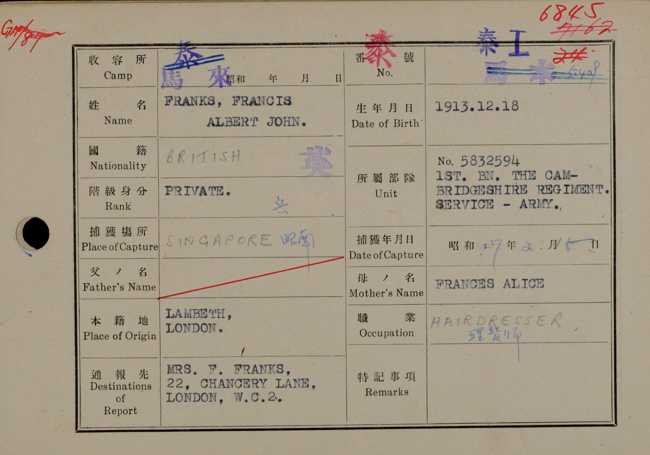 6845
7162
泰
馬來
泰
泰 工
收容所
Camp
昭和 年 月 日
番號
No.
姓名
Name
FRANKS, FRANCIS
ALBERT JOHN.
生年月日
Date of Birth
1913.12.18
國籍
Nationality
BRITISH
英
所屬部隊
Unit
No. 5832594
1ST. BN. THE CAM-
BRIDGESHIRE REGIMENT.
SERVICE - ARMY.
階級身分
Rank
PRIVATE.
兵
捕獲場所
Place of Capture
SINGAPORE 昭南
捕獲年月日
Date of Capture
昭和 17 年 2 月 15 日
父ノ名
Father's Name
母ノ名
Mother's Name
FRANCES ALICE
本籍地
Place of Origin
LAMBETH,
LONDON.
職業
Occupation
HAIRDRESSER
理髪師
通報先
Destinations
of
Report
MRS. F. FRANKS,
22, CHANCERY LANE,
LONDON, W.C.2.
特記事項
Remarks